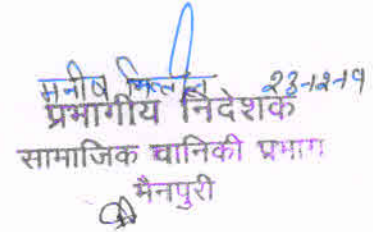 मनीष मित्तल 23-12-19
प्रभागीय निदेशक
सामाजिक वानिकी प्रभाग
मैनपुरी